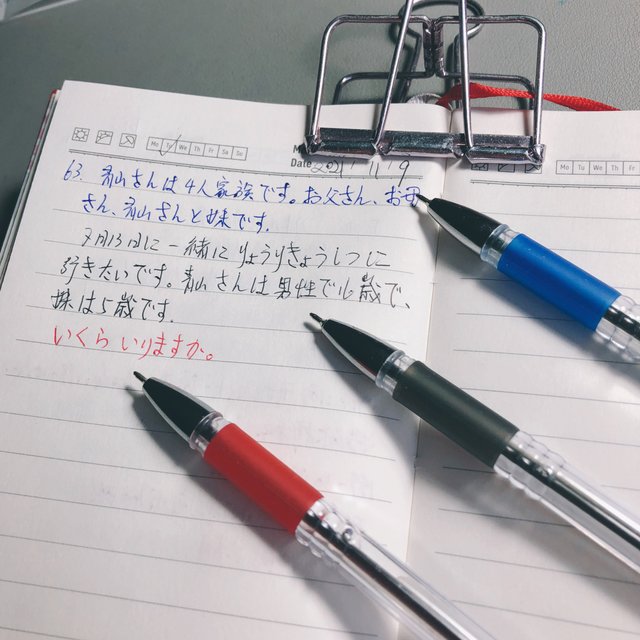 Mo Tu We Th Fr Sa Su
Date 2021 11 9
Mo Tu We Th Fr Sa Su
63. 青山さんは4人家族です。お父さん、お母
さん、青山さんと妹です。
3月13日に一緒にりょうりきょうしつに
行きたいです。青山さんは男性で16歳で、
妹は5歳です。
いくらいりますか。